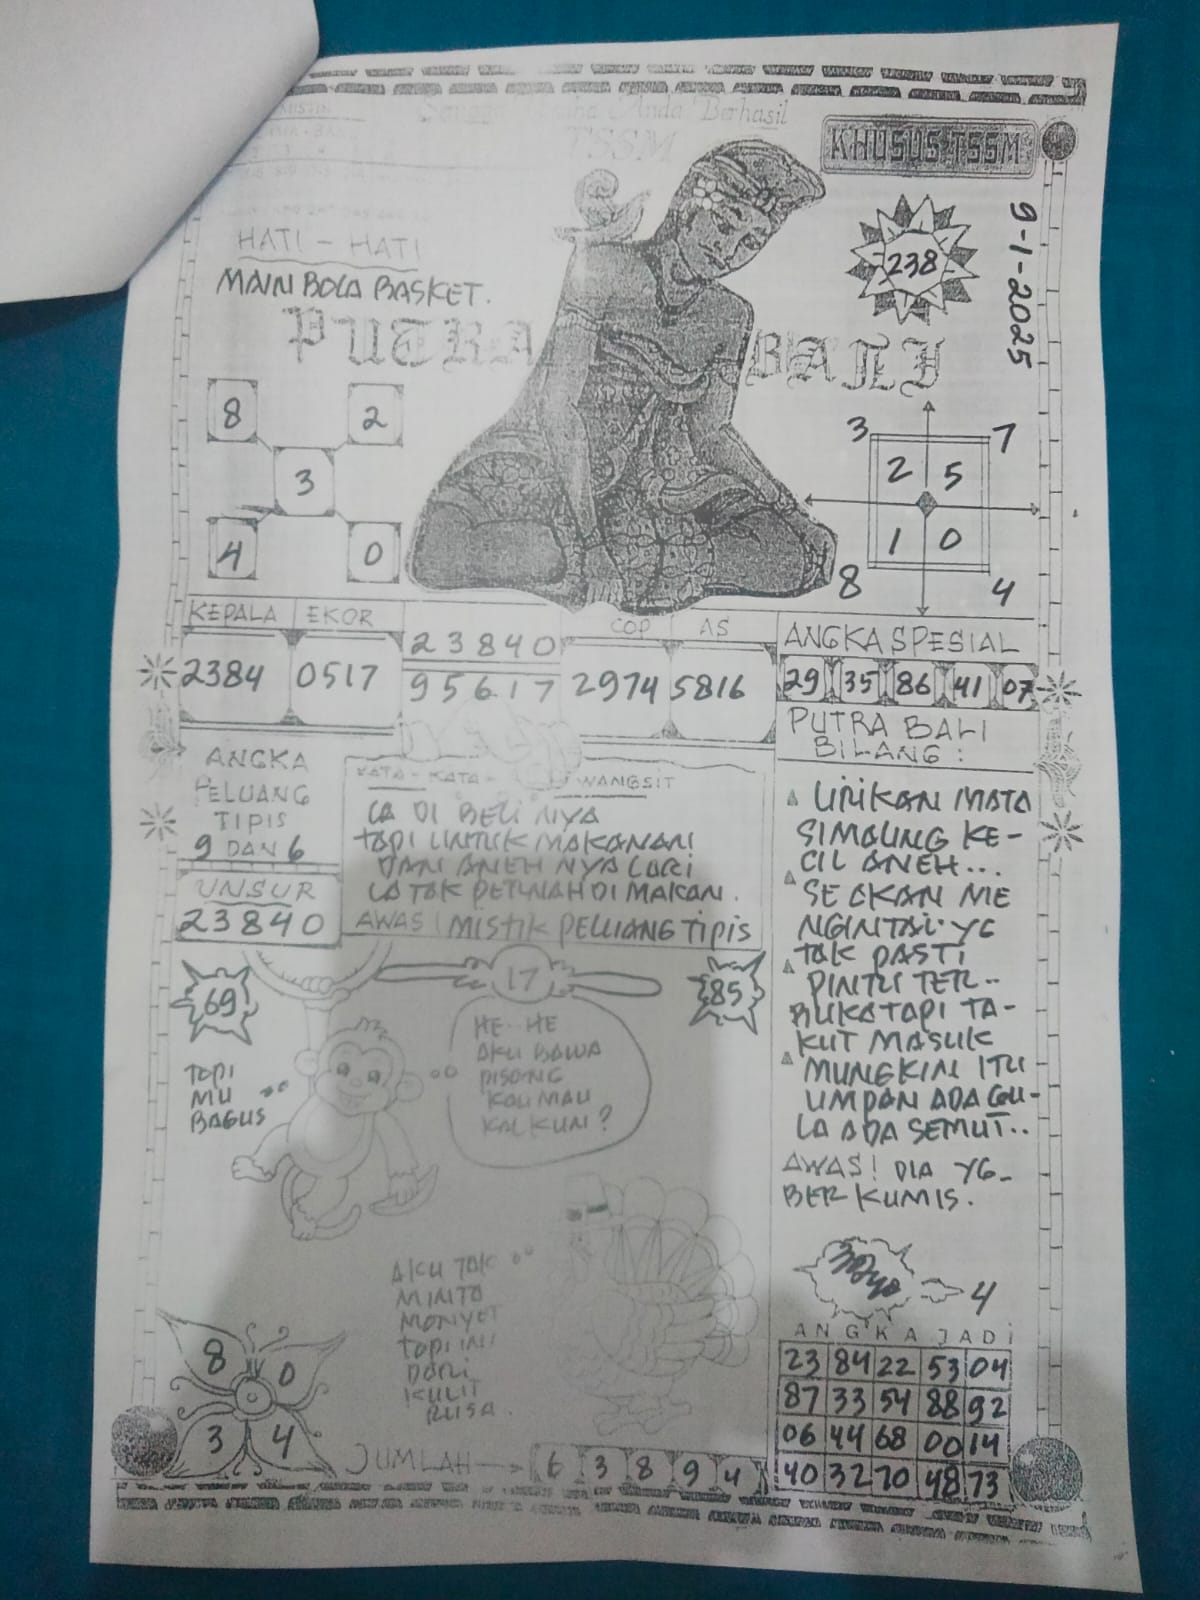 Anda Berhasil
TSSM
KHUSUS TSSM
9-1-2025
238
HATI - HATI
MAIN BOLA BASKET.
PUTRA BALI
8 2
3
4 0
3 7
2 5
1 0
8 4
KEPALA EKOR
2384 0517
23840
95617
COP AS
2974 5816
ANGKA SPESIAL
29 35 86 41 07
ANGKA
PELUANG
TIPIS
9 DAN 6
UNSUR
23840
KATA - KATA - WANGSIT
IA DI BELI NYA
TAPI UNTUK MAKANAN
DAN ANEH NYA LARI
IA TAK PERNAH DI MAKAN.
AWAS! MISTIK PELUANG TIPIS
PUTRA BALI
BILANG:
LIRIKAN MATA
SIMAUNG KE-
CIL ANEH...
SEAKAN ME
NGINTAI YG
TAK PASTI
PINTU TER..
BUKA TAPI TA-
KUT MASUK
MUNGKIN ITU
UMPAN ADA GU-
LA ADA SEMUT..
AWAS! DIA YG-
BERKUMIS.
69
17
85
TOPI
MU
BAGUS
HE-HE
AKU BAWA
PISANG
KAU MAU
KALKUN?
AKU TAK
MINTA
MONYET
TOPI INI
DARI
KULIT
RUSA.
8 0
3 4
JUMLAH 6 3 8 9 4
4
ANGKA JADI
23 84 22 53 04
87 33 54 88 92
06 44 68 00 14
40 32 70 48 73